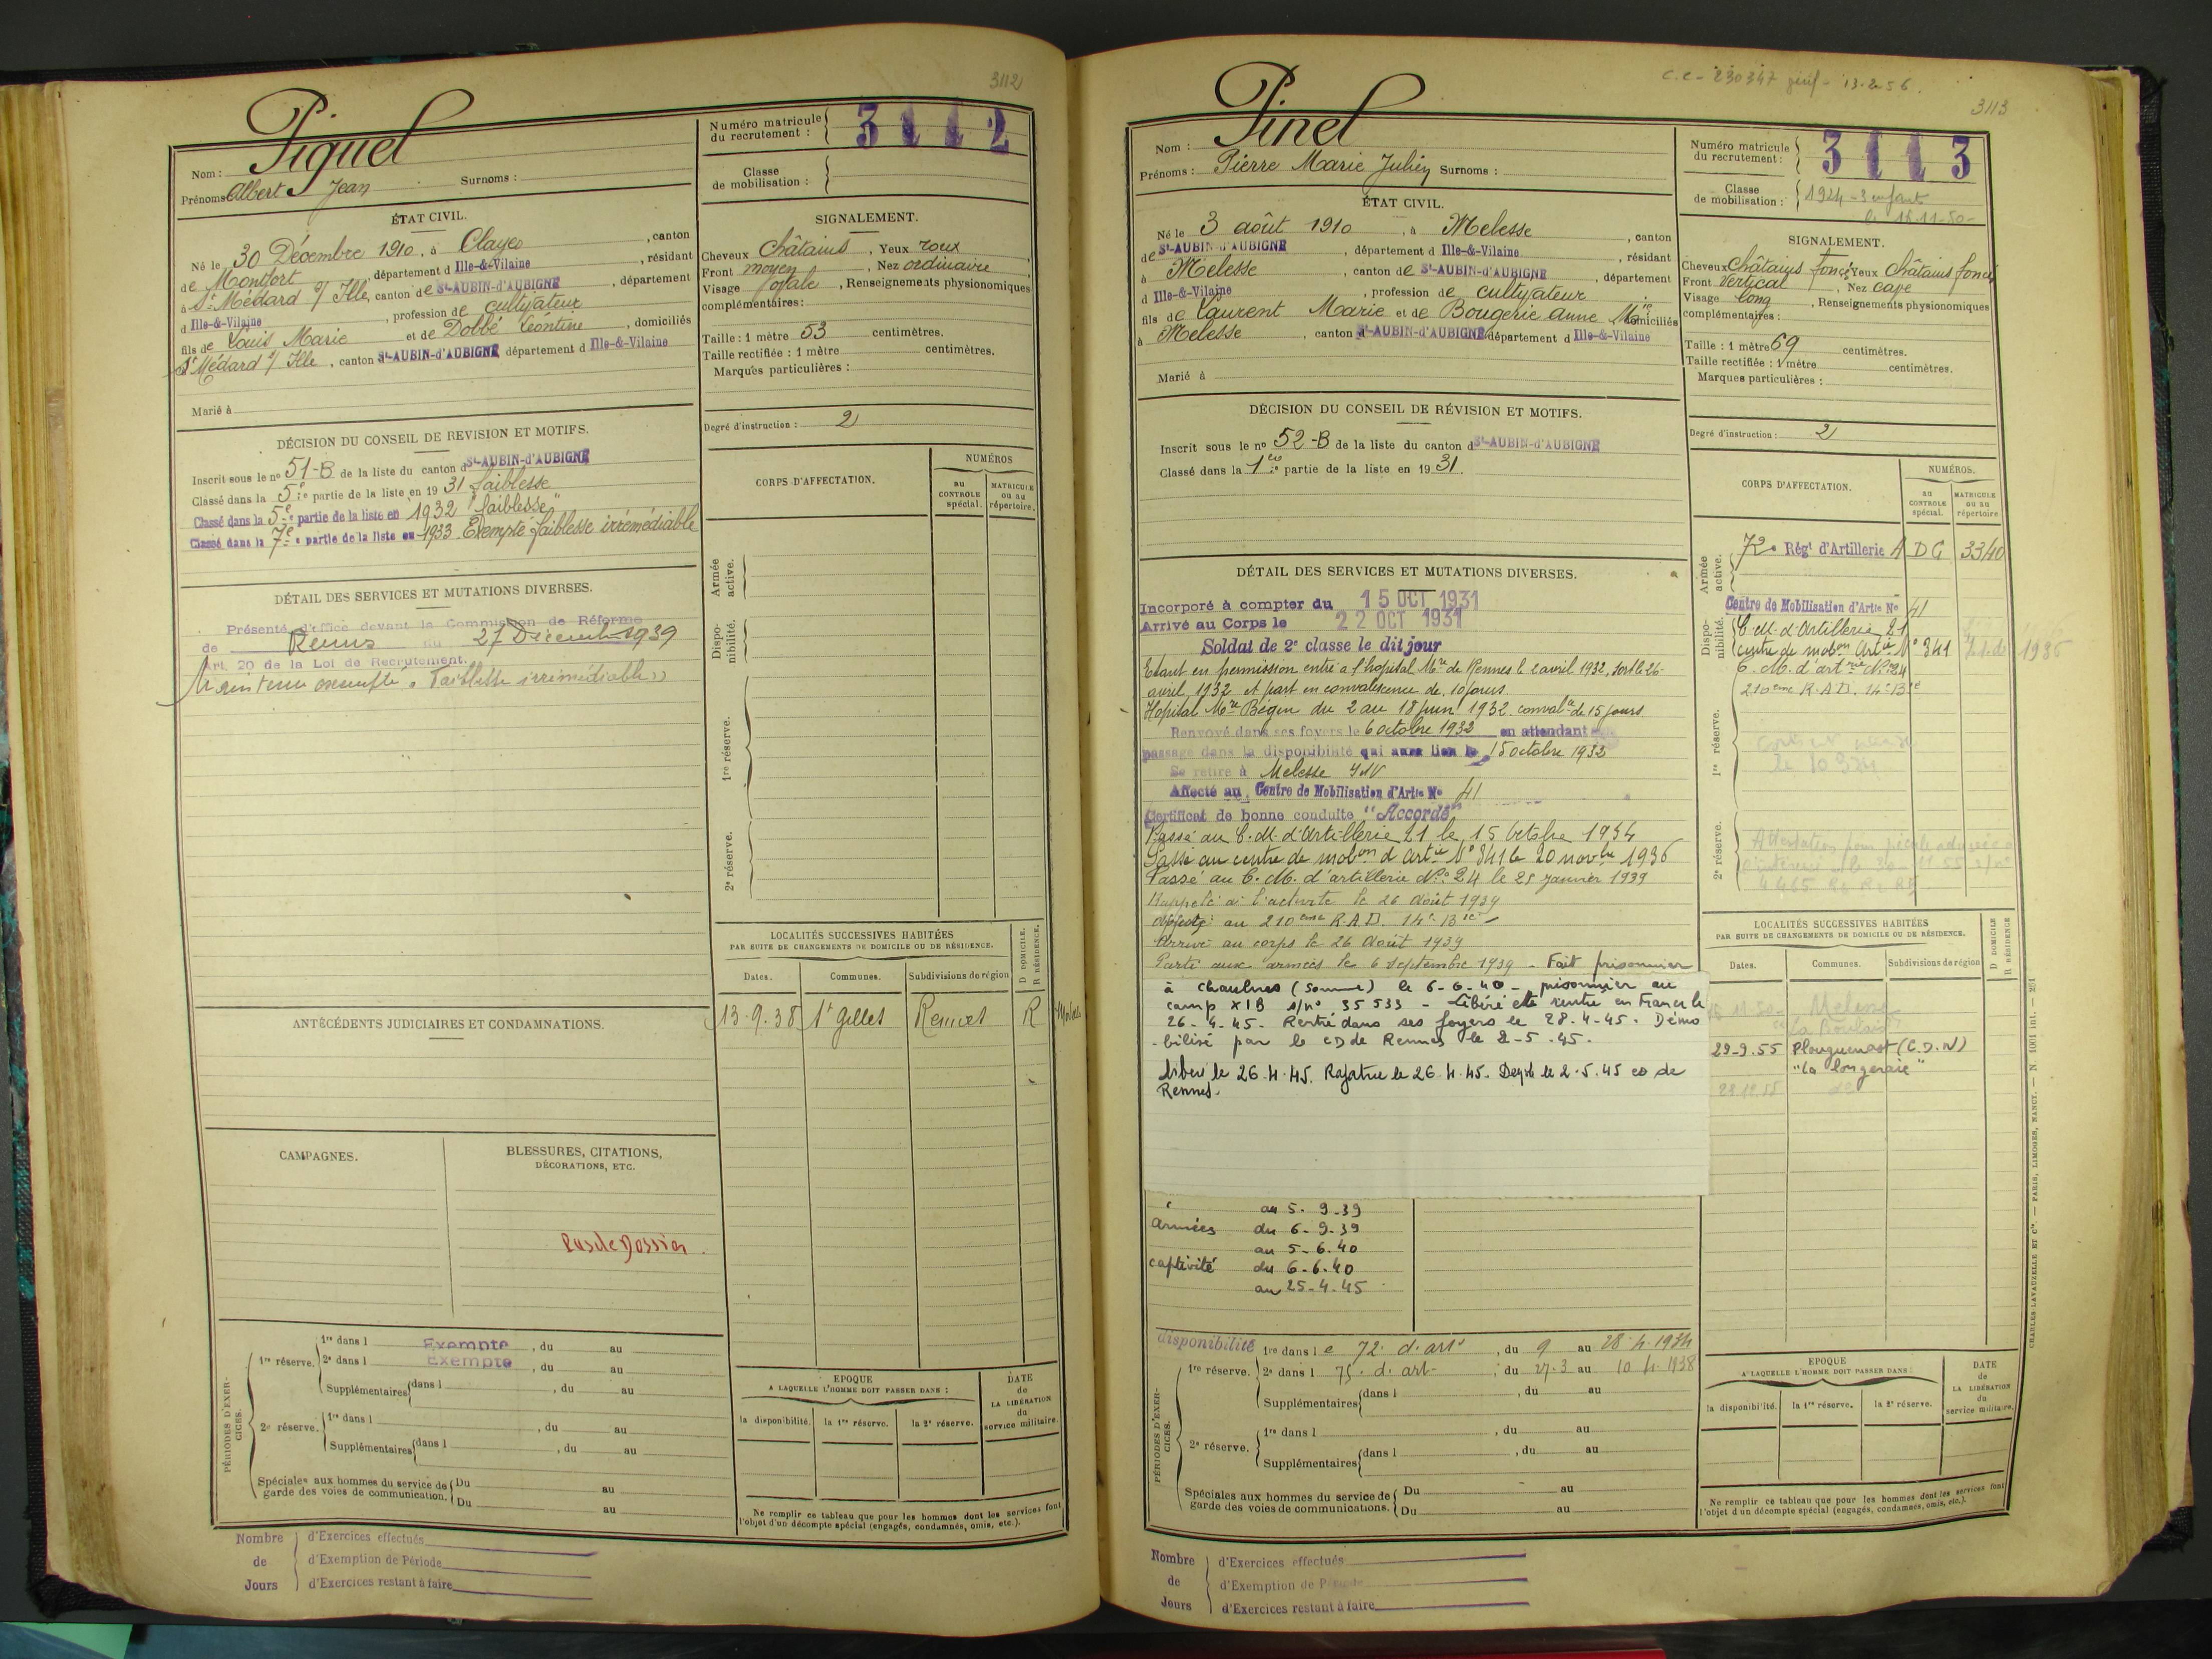 3112
Piquel
Nom :
Prénoms Albert Jean Surnoms :
Numéro matricule du recrutement : 3112
Classe de mobilisation :
ÉTAT CIVIL.
Né le 30 Décembre 1910, à Clayes, canton
de Montfort, département d Ille-&-Vilaine, résidant
à St Médard s/ Ille, canton de St-AUBIN-d'AUBIGNÉ, département
d Ille-&-Vilaine, profession de cultivateur
fils de Louis Marie et de Dobbé Léontine, domiciliés
à St Médard s/ Ille, canton St-AUBIN-d'AUBIGNÉ département d Ille-&-Vilaine
Marié à
SIGNALEMENT.
Cheveux Châtains, Yeux roux
Front moyen, Nez ordinaire
Visage ovale, Renseignements physionomiques
complémentaires :
Taille : 1 mètre 53 centimètres.
Taille rectifiée : 1 mètre centimètres.
Marques particulières :
Degré d'instruction : 2
DÉCISION DU CONSEIL DE REVISION ET MOTIFS.
Inscrit sous le no 51-B de la liste du canton d St-AUBIN-d'AUBIGNÉ
Classé dans la 5e partie de la liste en 1931 faiblesse
Classé dans la 5e partie de la liste en 1932 "faiblesse"
Classé dans la 7e partie de la liste en 1933 Exempté faiblesse irrémédiable
DÉTAIL DES SERVICES ET MUTATIONS DIVERSES.
Présenté d'office devant la Commission de Réforme
de Rennes du 27 Décemb 1939
Art. 20 de la Loi de Recrutement.
Maintenu exempté "Faiblesse irrémédiable"
CORPS D'AFFECTATION.
NUMÉROS
au CONTROLE spécial.
MATRICULE ou au répertoire.
Armée active.
Disponibilité.
1re réserve.
2e réserve.
ANTÉCÉDENTS JUDICIAIRES ET CONDAMNATIONS.
LOCALITÉS SUCCESSIVES HABITÉES
PAR SUITE DE CHANGEMENTS DE DOMICILE OU DE RÉSIDENCE.
Dates. Communes. Subdivisions de région D DOMICILE. R RÉSIDENCE.
13-9-38 St Gilles Rennes R
CAMPAGNES.
BLESSURES, CITATIONS,
DÉCORATIONS, ETC.
Pas de Dossier.
PÉRIODES D'EXERCICES.
1re réserve. 1re dans l Exempté, du au
2e dans l Exempté, du au
Supplémentaires dans l , du au
2e réserve. 1re dans l , du au
Supplémentaires dans l , du au
Spéciales aux hommes du service de garde des voies de communication. Du au
Du au
EPOQUE
A LAQUELLE L'HOMME DOIT PASSER DANS :
la disponibilité. la 1re réserve. la 2e réserve.
DATE de LA LIBÉRATION du service militaire.
Ne remplir ce tableau que pour les hommes dont les services font
l'objet d'un décompte spécial (engagés, condamnés, omis, etc.).
Nombre de Jours
d'Exercices effectués
d'Exemption de Période
d'Exercices restant à faire
13-2-56.
3113
Pinel
Nom :
Prénoms : Pierre Marie Julien Surnoms :
Numéro matricule du recrutement : 3113
Classe de mobilisation : 1924 - 3 enfants
le 16-11-50-
ÉTAT CIVIL.
Né le 3 août 1910, à Melesse, canton
de St-AUBIN-d'AUBIGNÉ, département d Ille-&-Vilaine, résidant
à Melesse, canton de St-AUBIN-d'AUBIGNÉ, département
d Ille-&-Vilaine, profession de cultivateur
fils de Laurent Marie et de Bougerie Anne Mie domiciliés
à Melesse, canton St-AUBIN-d'AUBIGNÉ département d Ille-&-Vilaine
Marié à
SIGNALEMENT.
Cheveux Châtains foncé Yeux Châtains foncé
Front Vertical, Nez cave
Visage long, Renseignements physionomiques
complémentaires :
Taille : 1 mètre 69 centimètres.
Taille rectifiée : 1 mètre centimètres.
Marques particulières :
Degré d'instruction : 2
DÉCISION DU CONSEIL DE RÉVISION ET MOTIFS.
Inscrit sous le no 52-B de la liste du canton d St-AUBIN-d'AUBIGNÉ
Classé dans la 1ère partie de la liste en 1931.
DÉTAIL DES SERVICES ET MUTATIONS DIVERSES.
Incorporé à compter du 15 OCT 1931
Arrivé au Corps le 22 OCT 1931
Soldat de 2e classe le dit jour
Etant en permission entré à l'hopital Mre de Rennes le 2 avril 1932, sorti le 26
avril 1932 et part en convalescence de 10 jours.
Hopital Mre Bégin du 2 au 18 juin 1932. convalce de 15 jours
Renvoyé dans ses foyers le 6 octobre 1932 en attendant
passage dans la disponibilité qui aura lieu le 15 octobre 1932
Se retire à Melesse I&V
Affecté au Centre de Mobilisation d'Artie No 41
Certificat de bonne conduite "Accordé"
Passé au C.M. d'Artillerie 21 le 15 Octobre 1934
Passé au centre de mobon d'artie No 341 le 20 novbre 1936
Passé au C.M. d'artillerie No 24 le 25 janvier 1939
Rappelé à l'activité le 26 Août 1939
Affecté au 210ème R.A.D. 14e Bie
Arrivé au corps le 26 Août 1939
Parti aux armées le 6 septembre 1939 - Fait prisonnier
à Chaulnes (Somme) le 6-6-40 - prisonnier au
camp XIB s/no 35533 - Libéré et rentré en France le
26-4-45. Rentré dans ses foyers le 28.4-45. Démo
-bilisé par le CD de Rennes le 2-5-45.
Libéré le 26.4.45. Rapatrié le 26.4.45. le 2.5.45 de
Rennes.
CORPS D'AFFECTATION.
NUMÉROS.
au CONTROLE spécial.
MATRICULE ou au répertoire.
Armée active.
72e Régt d'Artillerie A DC 3340
Disponibilité.
Centre de Mobilisation d'Artie No 41
C.M. d'Artillerie 21
centre de mobon Artie No 341 1936
C.M. d'artrie No 24
210ème R.A.D. 14e Bie
1re réserve.
2e réserve.
LOCALITÉS SUCCESSIVES HABITÉES
PAR SUITE DE CHANGEMENTS DE DOMICILE OU DE RÉSIDENCE.
Dates. Communes. Subdivisions de région D DOMICILE R RÉSIDENCE
11-50- Melesse
29-9.55 Plouguenast (C.D.N)
"la longeraie"
au 5-9-39
armées du 6-9-39
au 5-6-40
captivité du 6-6-40
au 25-4-45
PÉRIODES D'EXERCICES.
disponibilité 1re dans le 72. d'artie, du 9 au 28-4-1934
1re réserve. 2e dans l 75. d'art, du 27-3 au 10-4-1938
Supplémentaires dans l , du au
2e réserve. 1re dans l , du au
Supplémentaires dans l , du au
Spéciales aux hommes du service de garde des voies de communications. Du au
Du au
EPOQUE
A LAQUELLE L'HOMME DOIT PASSER DANS :
la disponibilité. la 1re réserve. la 2e réserve.
DATE de LA LIBÉRATION du service militaire.
Ne remplir ce tableau que pour les hommes dont les services font
l'objet d'un décompte spécial (engagés, condamnés, omis, etc.).
CHARLES-LAVAUZELLE ET Cie. — PARIS, LIMOGES, NANCY. —
Nombre de Jours
d'Exercices effectués
d'Exemption de Période
d'Exercices restant à faire